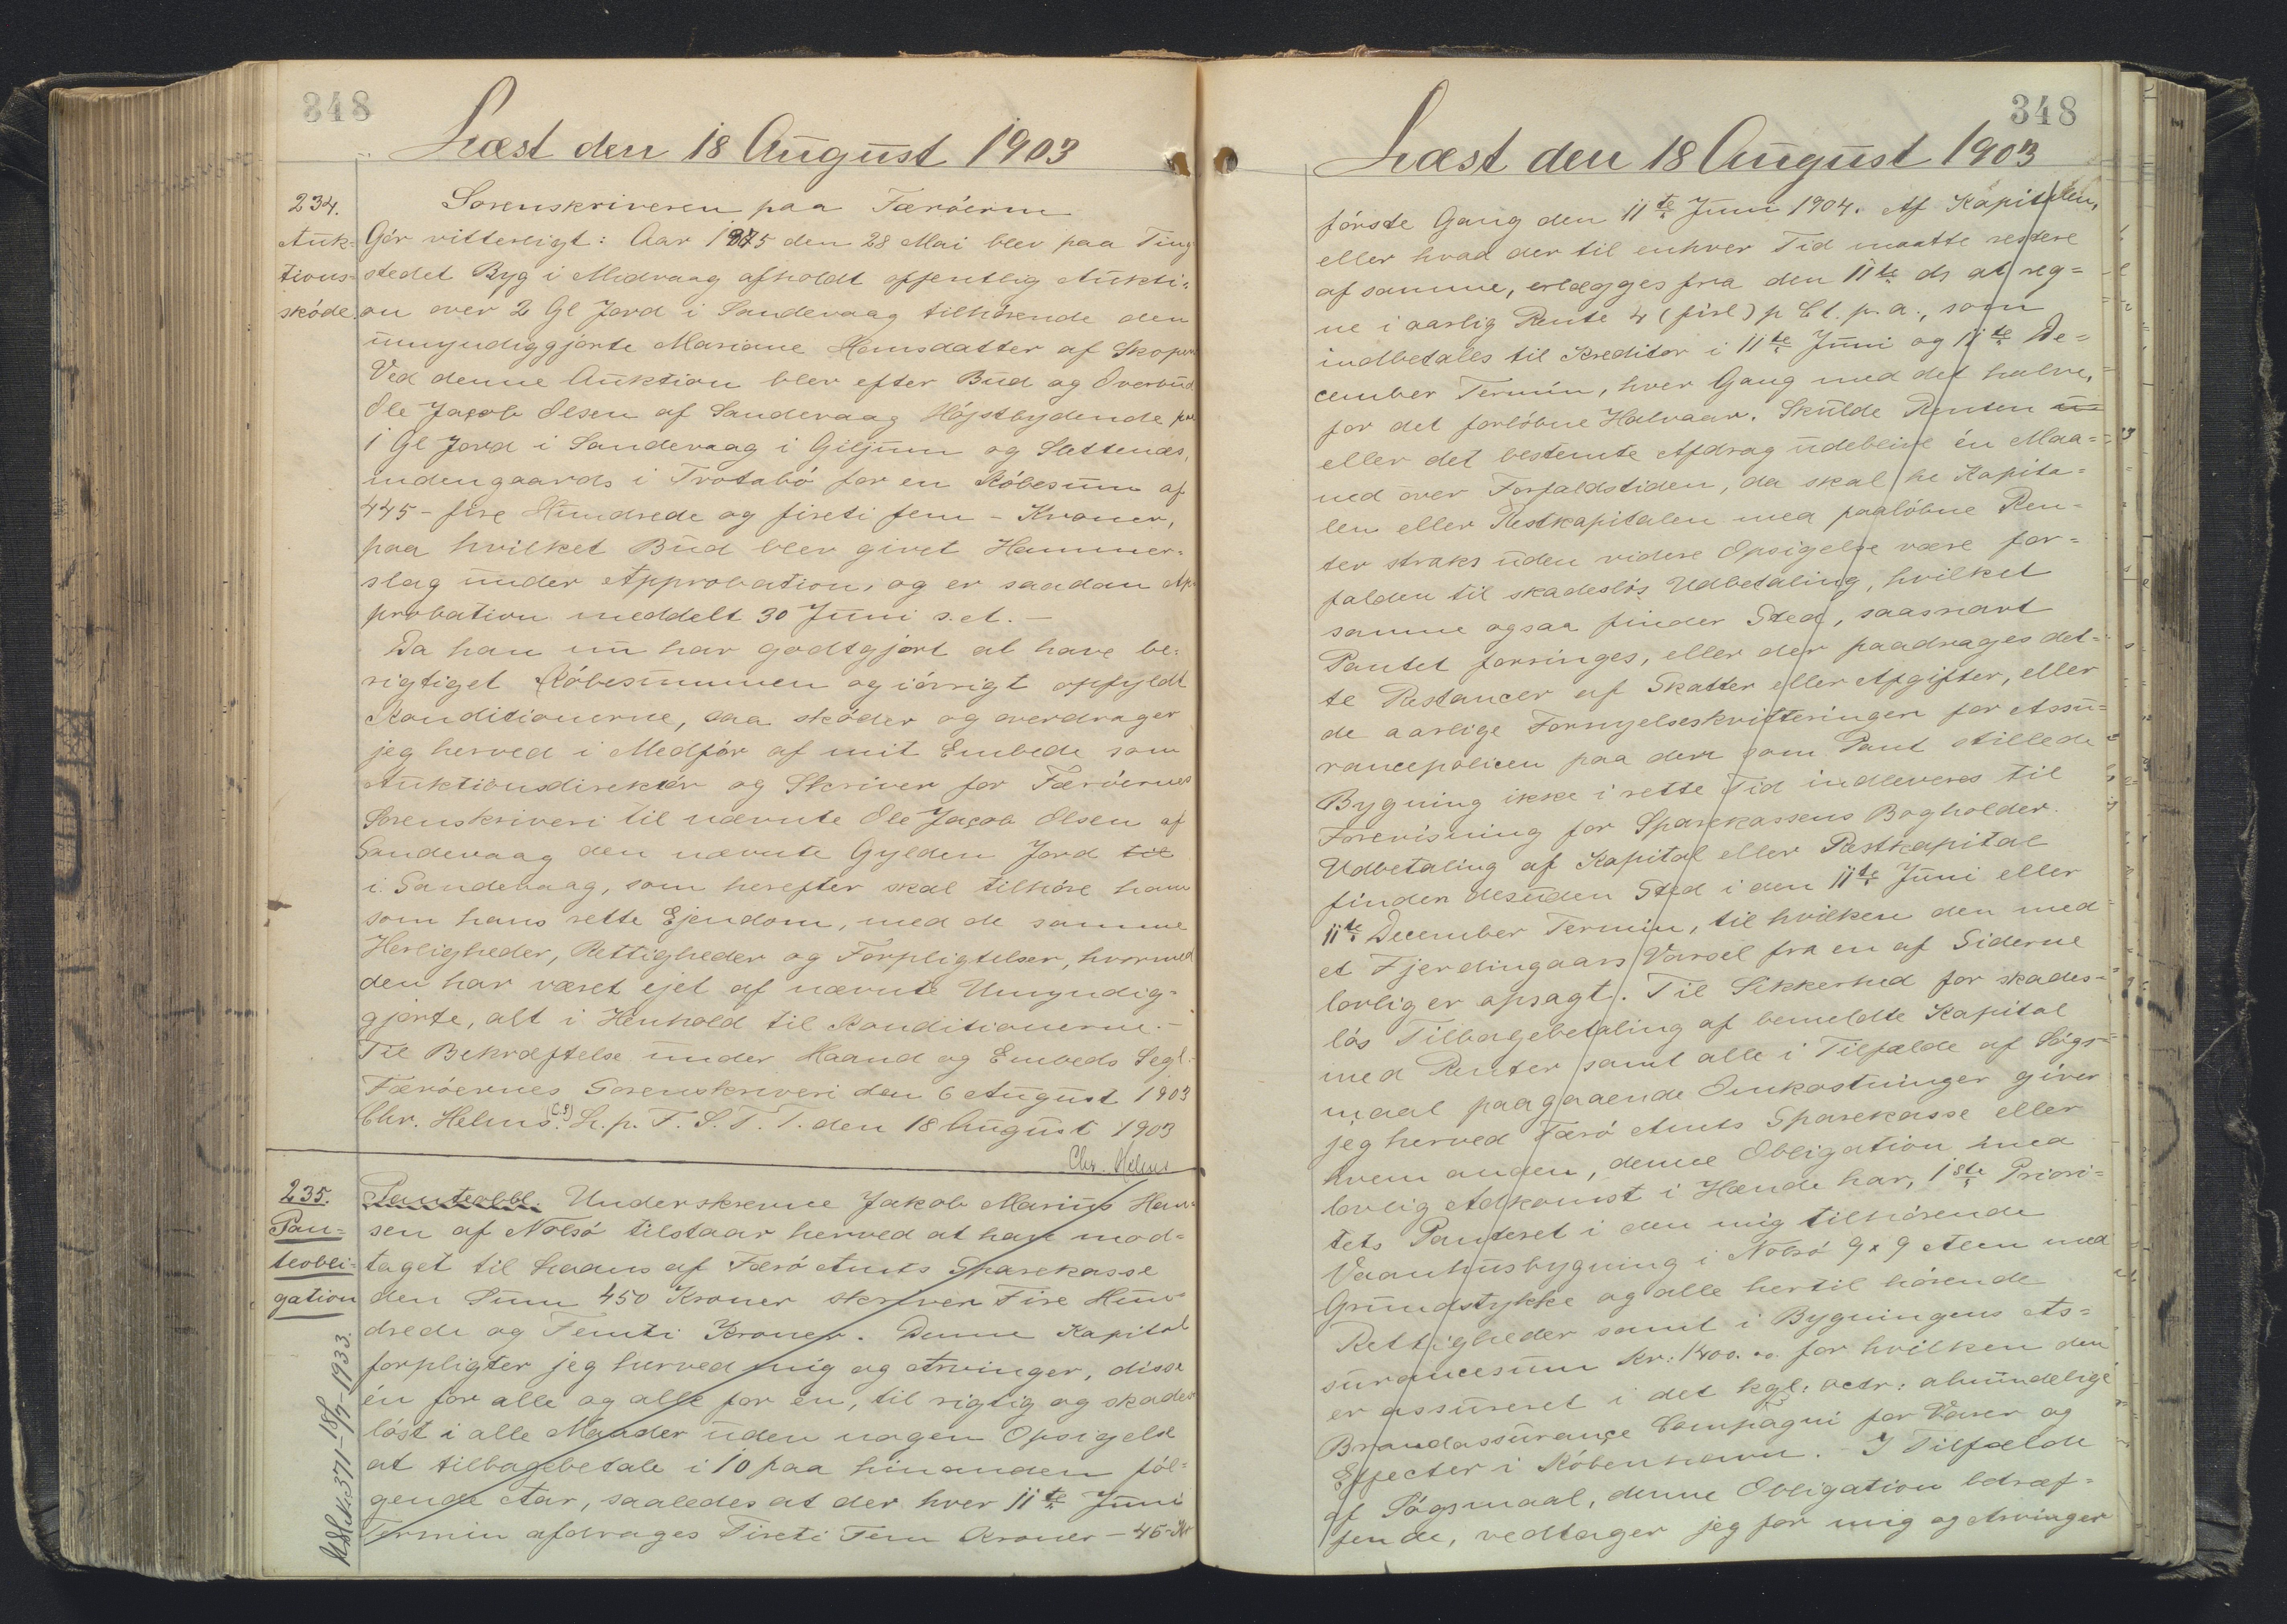 348
Læst den 18 August 1903
234.
Auk-
tions-
skøde.
Sorenskriveren paa Færøerne
Gør vitterligt: Aar 1875 den 28 Mai blev paa Ting
stedet Byg i Midvaag afholdt offentlig Aukti-
on over 2 Gl Jord i Sandevaag tilhørende den
umyndiggjorte Mariane Hansdatter af Skopen
Ved denne Auktion blev efter Bud og Overbud
Ole Jacob Olsen af Sandevaag Højstbydende paa
1 Gl Jord i Sandevaag i Giljum og Slettenæs,
indengaards i Trøtabø for en Købesum af
445 - fire Hundrede og fireti fem - Kroner,
paa hvilket Bud blev givet Hammer-
slag under Approbation, og er saadan Ap-
probation meddelt 30 Juni s. et. -
Da han nu har godtgjort at have be-
rigtiget Købesummen og iøvrigt opfyldt
Konditionerne, saa skøder og overdrager
jeg herved i Medfør af mit Embede som
Auktionsdirektør og Skriver for Færøernes
Sorenskriveri til nævnte Ole Jacob Olsen af
Sandevaag den nævnte Gylden Jord til
i Sandevaag, som herefter skal tilhøre ham
som hans rette Ejendom, med de samme
Herligheder, Rettigheder og Forpligtelser, hvormed
den har været ejet af nævnte Umyndig-
gjorte, alt i Henhold til Konditionerne. -
Til Bekræftelse under Haand og Embeds Segl.
Færøernes Sorenskriveri den 6 August 1903
Chr. Helms. (L.S.) L. p. F. S. T. T. den 18 August 1903
Chr. Helms
235.
Pan-
teobli-
gation
Panteobl. Underskrevne Jakob Marius Han-
sen af Nolsø tilstaar herved at have mod-
taget til Laans af Færø Amts Sparekasse
den Sum 450 Kroner skriver Fire Hun-
drede og Femti Kroner. Denne Kapital
forpligter jeg herved mig og Arvinger, disse
én for alle og alle for én, til rigtig og skades
løst i alle Maader uden nogen Opsigelse
at tilbagebetale i 10 paa hinanden føl-
gende Aar, saaledes at der hver 11te Juni
Termin afdrages Fireti Fem Kroner - 45 Kr
348
Læst den 18 August 1903
første Gang den 11te Juni 1904. Af Kapitalen,
eller hvad der til enhver Tid maatte restere
af samme, erlægges fra den 11te ds at reg-
ne i aarlig Rente 4 (fire) p Ct. p. a., som
indbetales til Kreditor i 11te Juni og 11te De-
cember Termin, hver Gang med det halve,
for det forløbne Halvaar. Skulde Renten
eller det bestemte Afdrag udeblive én Maa-
ned over Forfaldstiden, da skal he Kapita-
len eller Restkapitalen med paaløbne Ren-
ter straks uden videre Opsigelse være for-
falden til skadesløs Udbetaling, hvilket
samme ogsaa finder Sted, saasnart
Pantet forringes, eller der paadrages det-
te Restancer af Skatter eller Afgifter, eller
de aarlige Fornyelseskvitteringer for Assu-
rancepolicen paa den som Pant stillede
Bygning ikke i rette Tid indleveres til
Forevisning for Sparekassens Bogholder.
Udbetaling af Kapital eller Restkapital
finder desuden Sted i den 11te Juni eller
11te December Termin, til hvilken den med
et Fjerdingaars Varsel fra en af Siderne
lovlig er opsagt. Til Sikkerhed for skades-
løs Tilbagebetaling af bemeldte Kapital
med Renter samt alle i Tilfælde af Søgs-
maal paagaaende Omkostninger giver
jeg herved Færø Amts Sparekasse eller
hvem anden, denne Obligation med
lovlig Adkomst i Hænde har, 1ste Priori-
tets Panteret i den mig tilhørende
Vaanhusbygning i Nolsø 9 x 9 Alen med
Grundstykke og alle hertil hørende
Rettigheder samt i Bygningens As-
surancesum Kr: 1400. oo. for hvilken den
er assureret i det kgl: octr: almindelige
Brandassurance Compagni for Varer og
Effecter i København. - I Tilfælde
af Søgsmaal, denne Obligation betræf-
fende, vedtager jeg for mig og Arvinger